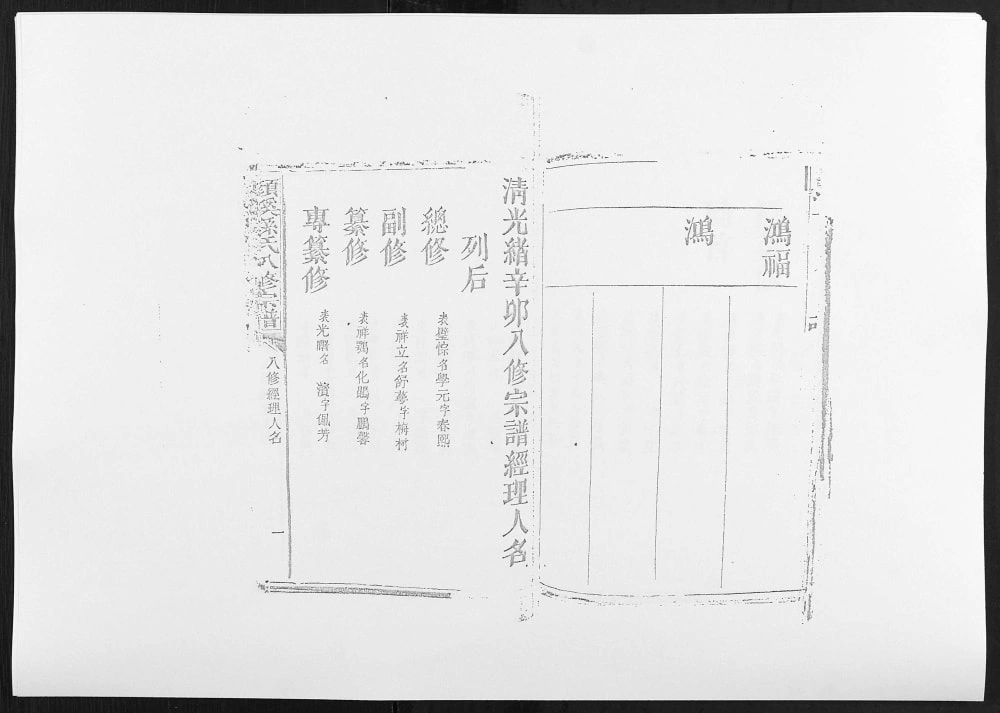 鴻福
鴻
清光緒辛卯八修宗譜經理人名
列后
總修
名學元字春熙
副修
祥立名舒藝字梅柯
纂修
祥鶚名化鵬字鵬馨
專纂修
光曙名 濱字佩芳
孫氏八修宗譜
八修經理人名
一